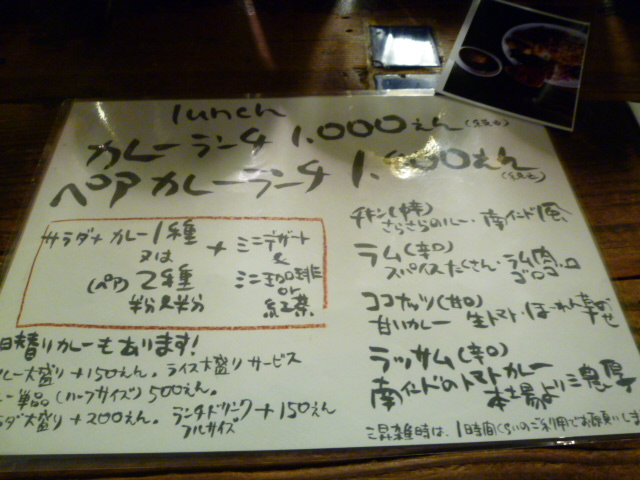 lunch
カレーランチ 1,000えん(税込)
ペアカレーランチ 1, 00えん(税込)
サラダ+カレー1種 + ミニデザート
又は &
(ペア)2種 ミニ珈琲
or
紅茶
チキン(中辛)
さらさらのルー・南インド風
ラム(辛口)
スパイスたくさん・ラム肉ゴロゴロ
ココナッツ(甘口)
甘いカレー 生トマト・ほーれん草のせ
ラッサム(辛口)
南インドのトマトカレー
本場より濃厚
日替りカレーもあります!
カレー大盛り+150えん。ライス大盛りサービス
単品(ハーフサイズ)500えん。
サラダ大盛り+200えん。ランチドリンク+150えん
フルサイズ
混雑時は、1時間くらいのご利用でお願いしま